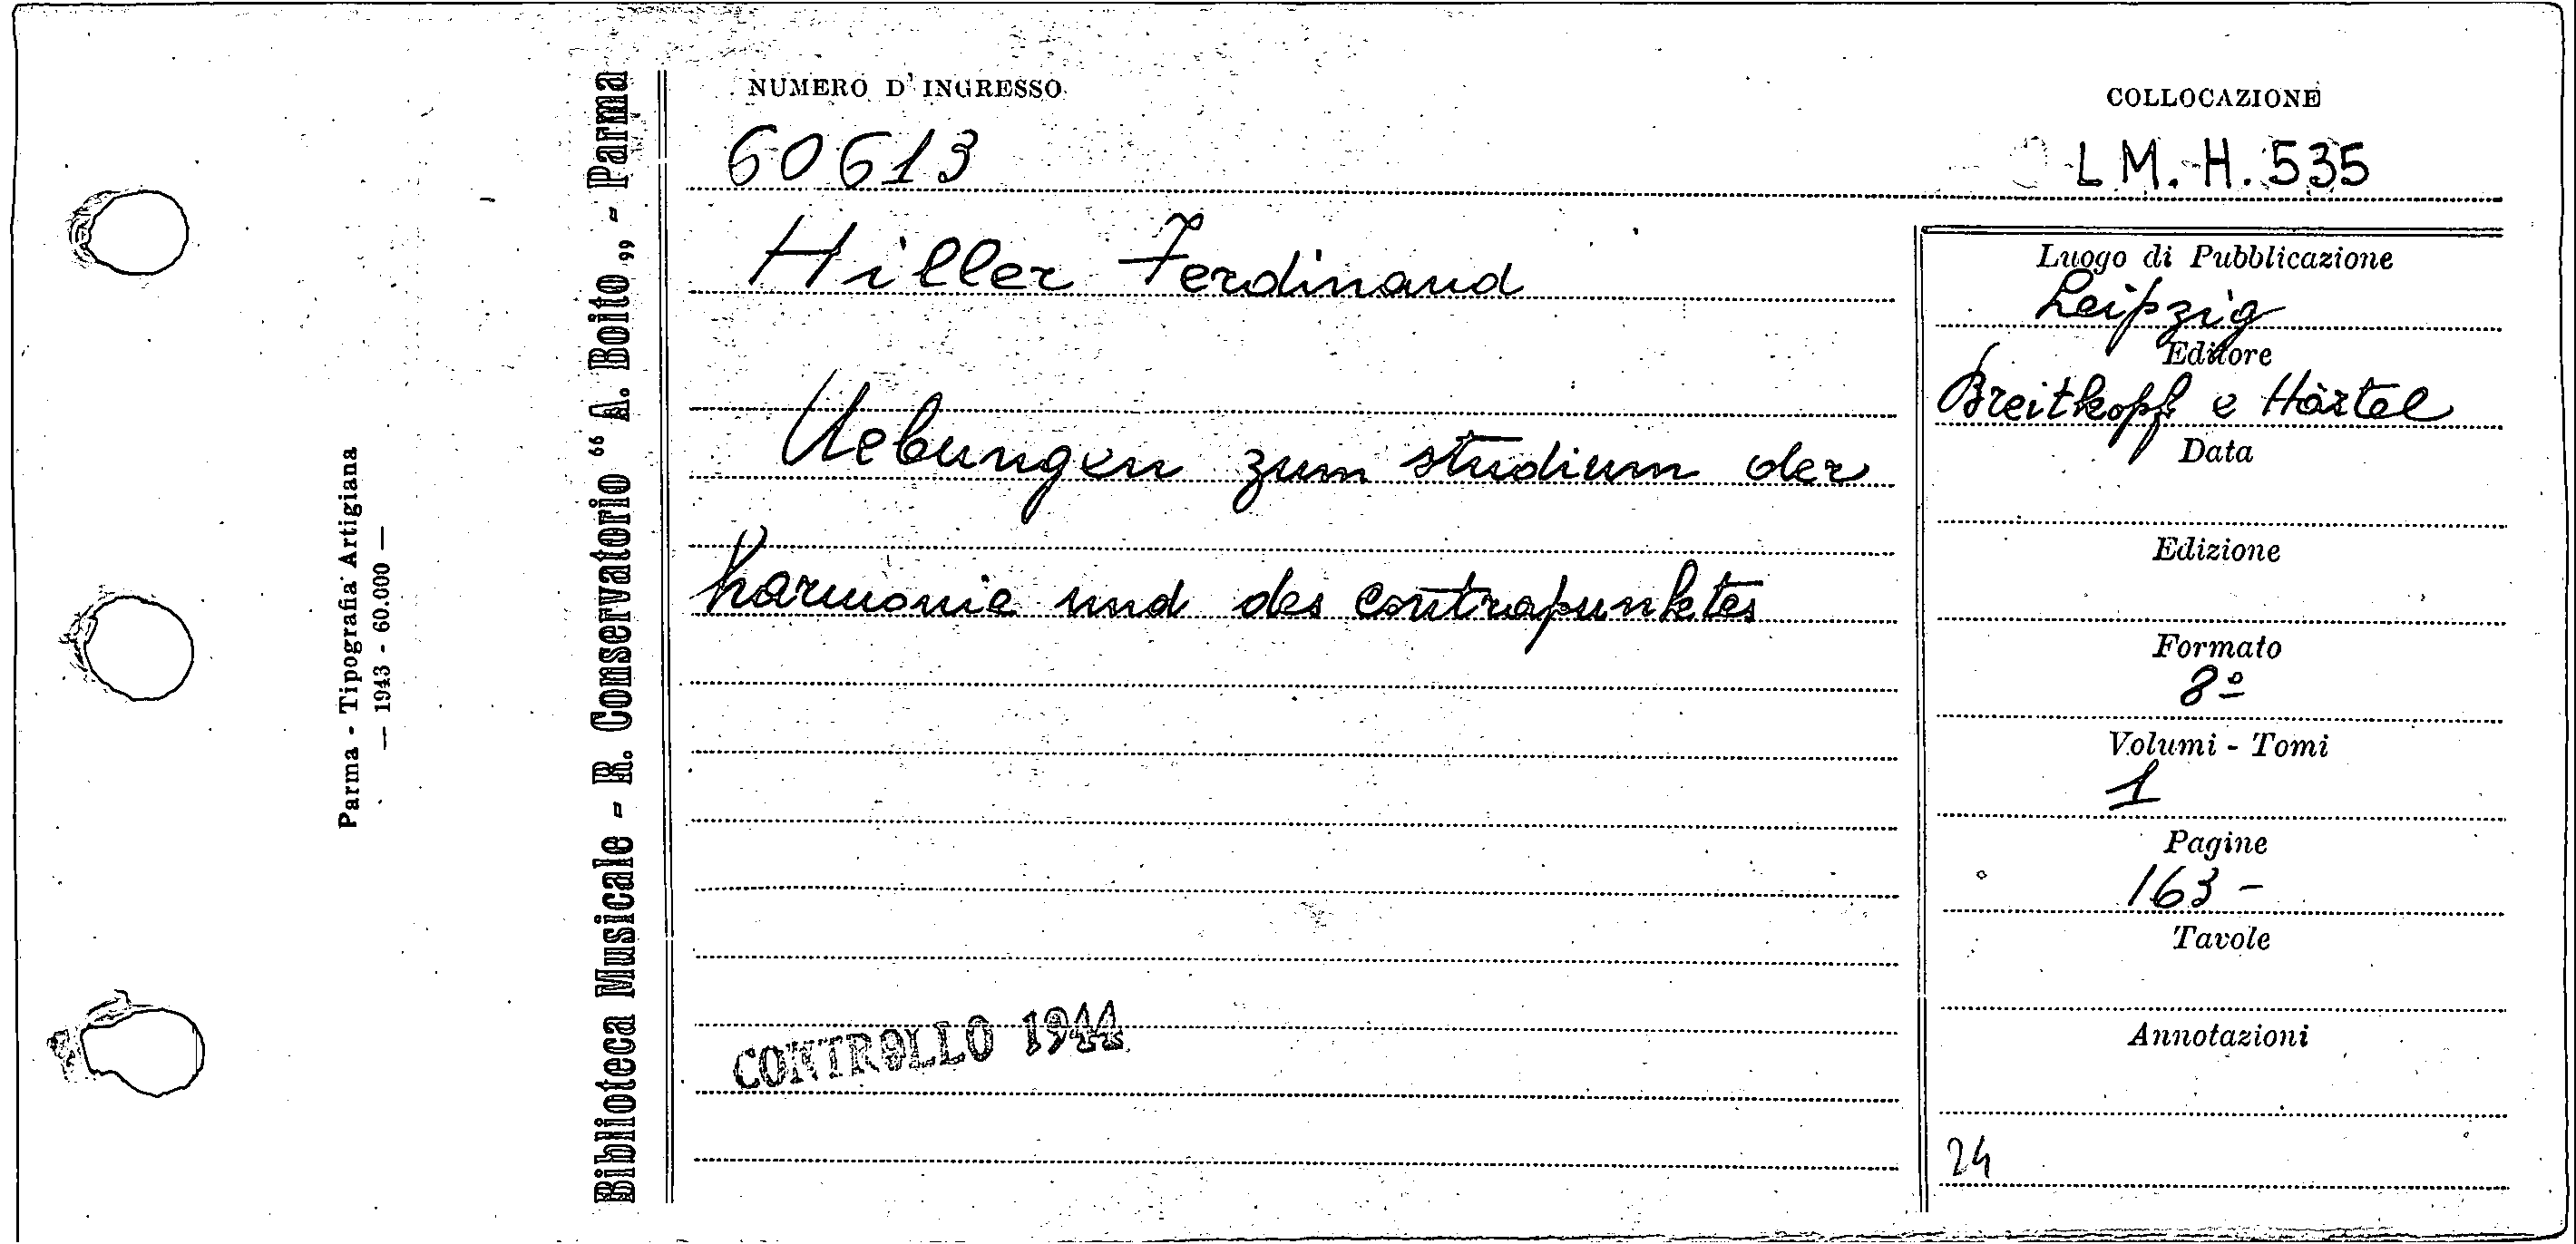 Parma - Tipografia Artigiana
— 1943 - 60.000 —
Biblioteca Musicale - R. Conservatorio “ A. Boito „ - Parma
NUMERO D' INGRESSO
60613
COLLOCAZIONE
L M. H. 535
Hiller Ferdinand
Uebungen zum studium der
harmonie und des contrapunktes
CONTROLLO 1944
Luogo di Pubblicazione
Leipzig
Editore
Breitkopf e Härtel
Data
Edizione
Formato
8º
Volumi - Tomi
1
Pagine
163 -
Tavole
Annotazioni
24